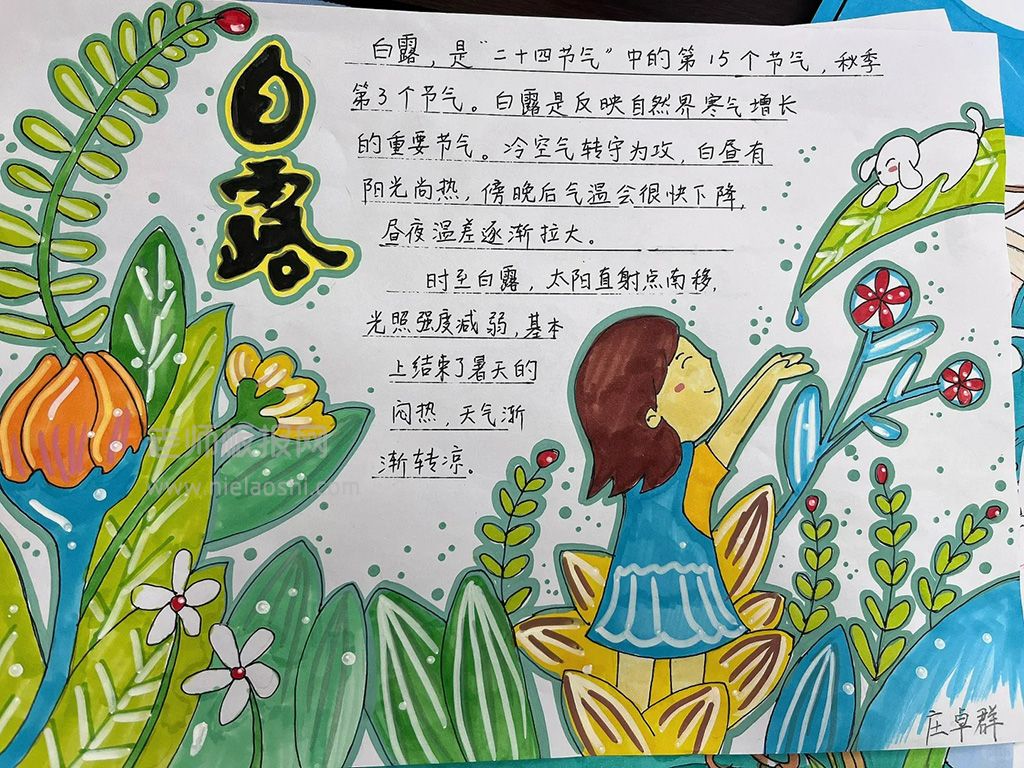 白露
白露，是“二十四节气”中的第15个节气，秋季
第3个节气。白露是反映自然界寒气增长
的重要节气。冷空气转守为攻，白昼有
阳光尚热，傍晚后气温会很快下降，
昼夜温差逐渐拉大。
时至白露，太阳直射点南移，
光照强度减弱，基本
上结束了暑天的
闷热，天气渐
渐转凉。
老师板报网
www.nielaoshi.com
庄卓群